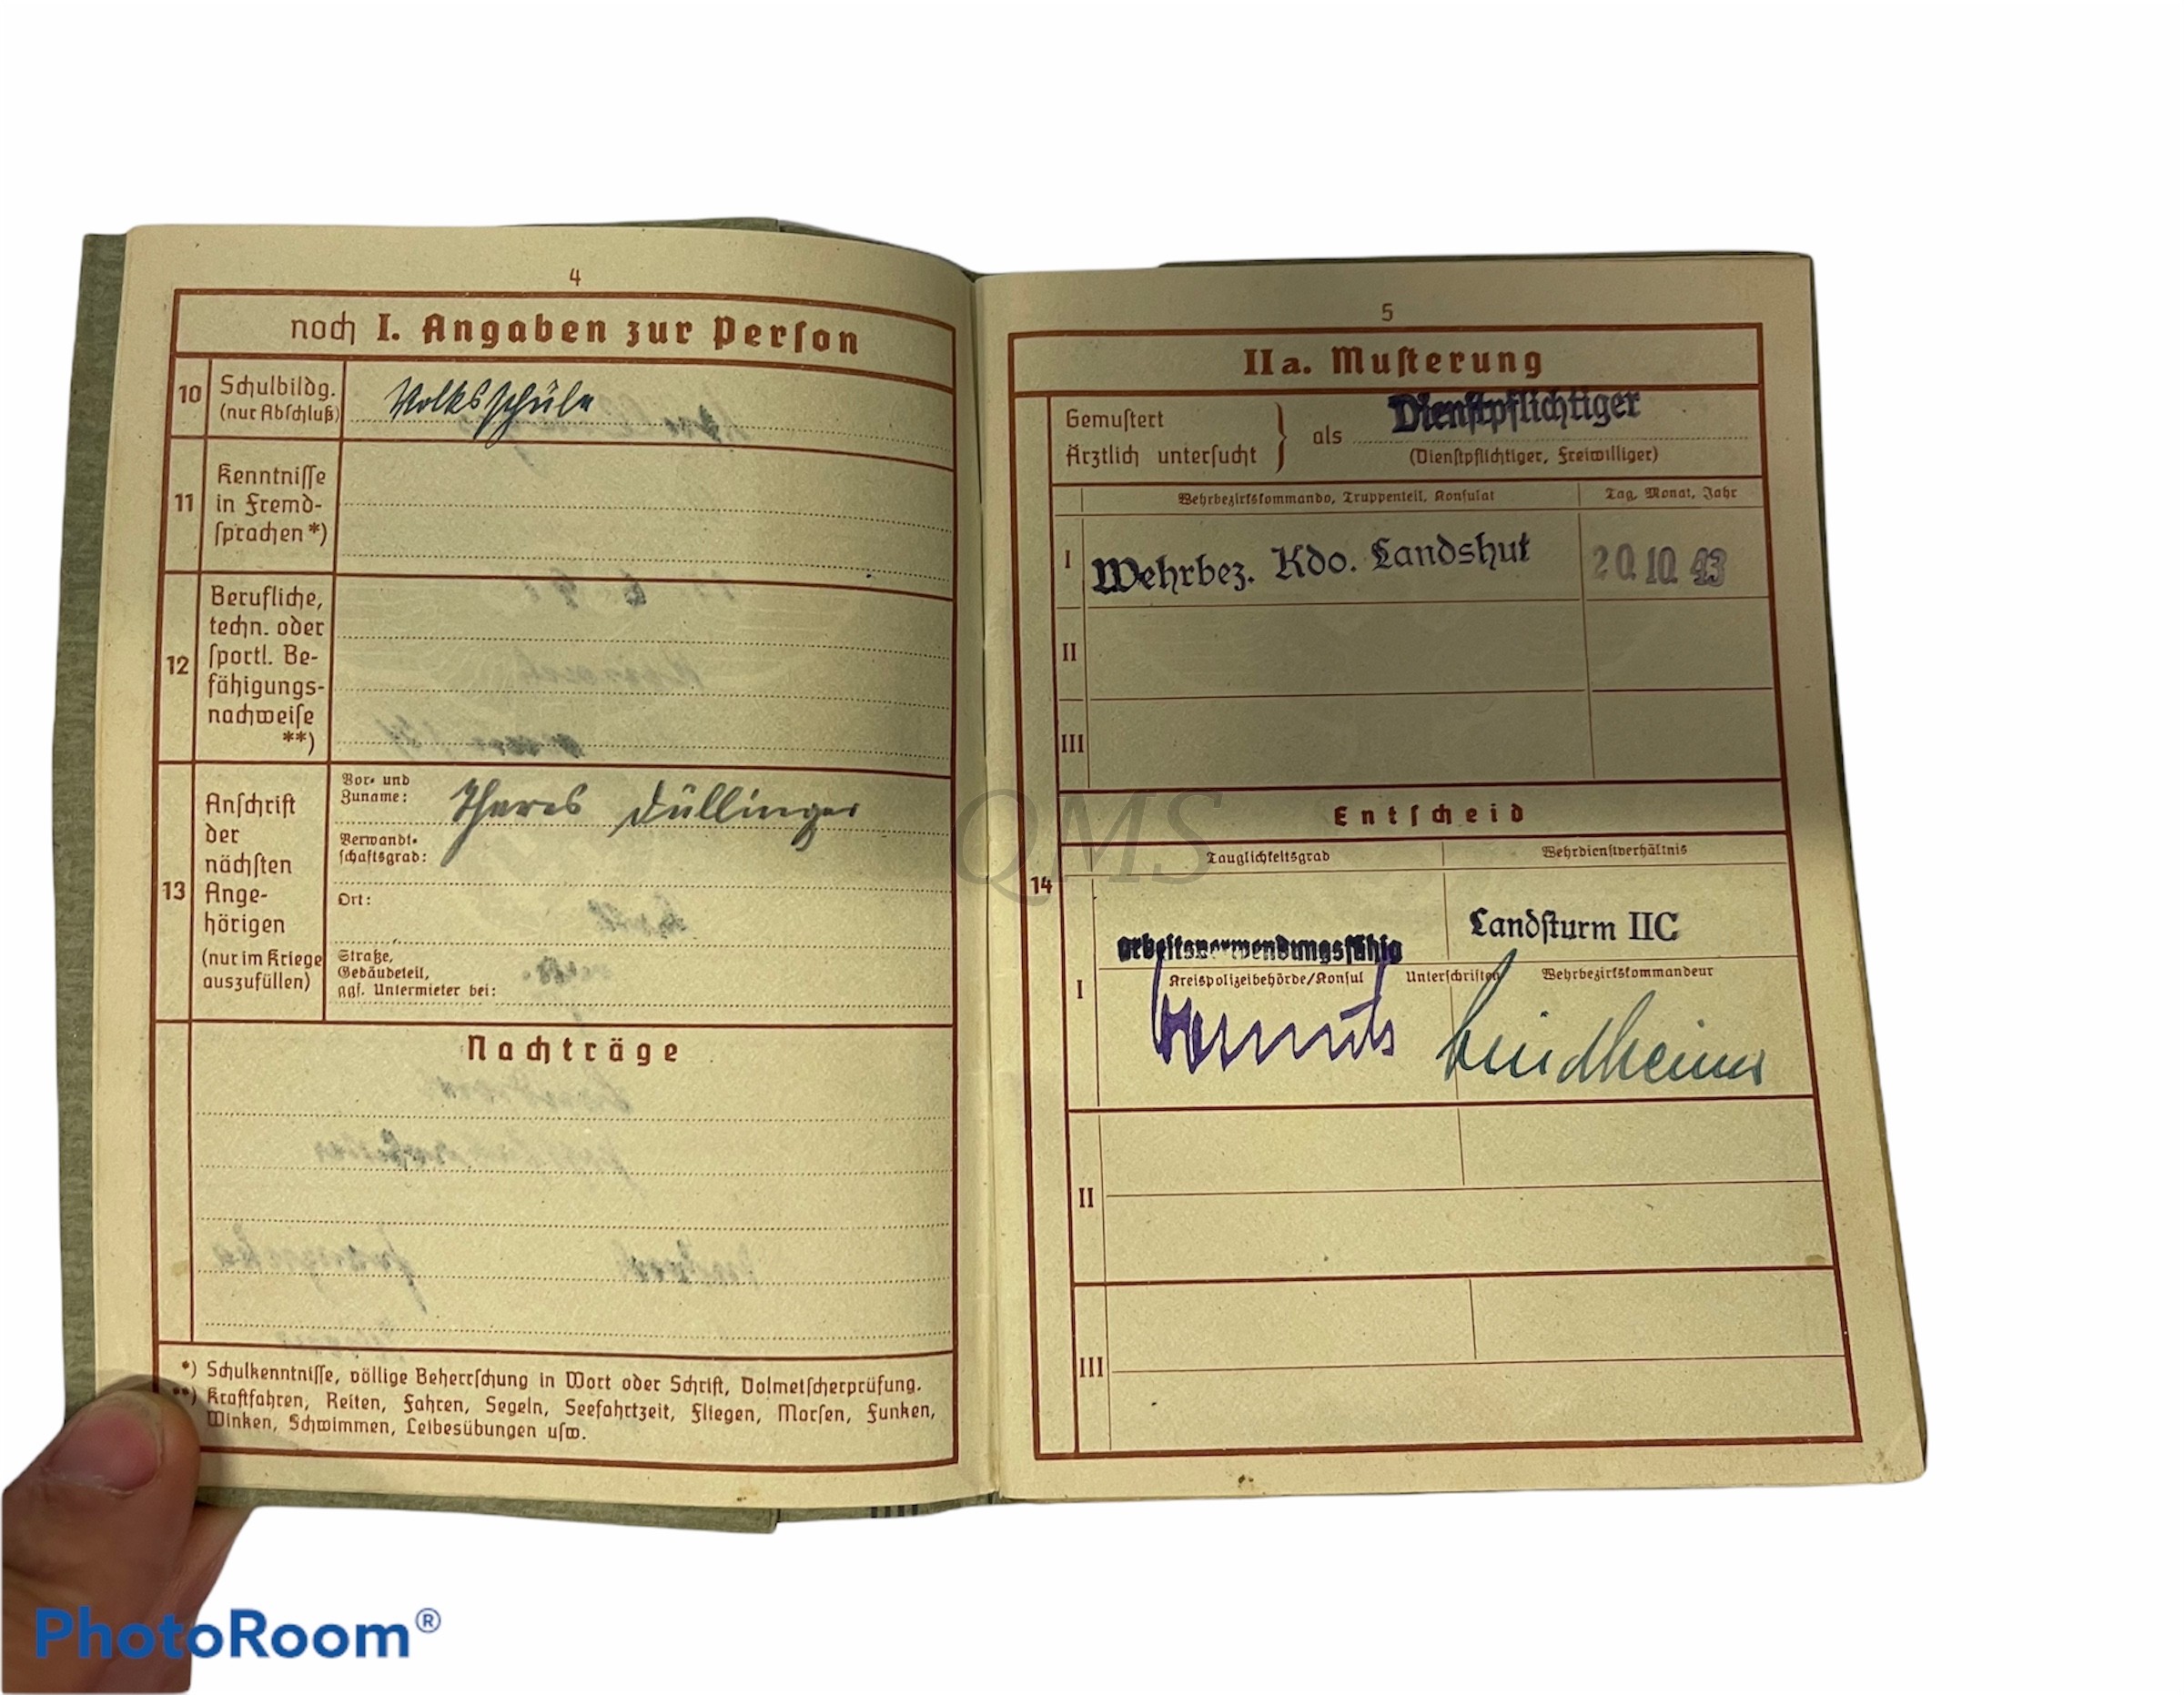 4
noch I. Angaben zur Person
10 Schulbildg. (nur Abschluß)
Volksschule
11 Kenntnisse in Fremd-
sprachen *)
12 Berufliche,
techn. oder
sportl. Be-
fähigungs-
nachweise
**)
13 Anschrift
der
nächsten
Ange-
hörigen
(nur im Kriege
auszufüllen)
Vor- und
Zuname:
Theres Füllinger
Verwandt-
schaftsgrad:
Ort:
Straße,
Gebäudeteil,
ggf. Untermieter bei:
Nachträge
*) Schulkenntnisse, völlige Beherrschung in Wort oder Schrift, Dolmetscherprüfung.
**) Kraftfahren, Reiten, Fahren, Segeln, Seefahrtzeit, Fliegen, Morsen, Funken,
Winken, Schwimmen, Leibesübungen usw.
5
IIa. Musterung
Gemustert
Ärztlich untersucht
als Dienstpflichtiger
(Dienstpflichtiger, Freiwilliger)
Wehrbezirkskommando, Truppenteil, Konsulat
Tag, Monat, Jahr
I Wehrbez. Kdo. Landshut 20.10.43
II
III
Entscheid
14
Tauglichkeitsgrad Wehrdienstverhältnis
I arbeitsverwendungsfähig Landsturm IIC
Kreispolizeibehörde/Konsul Unterschriften Wehrbezirkskommandeur
II
III
QMS
PhotoRoom®